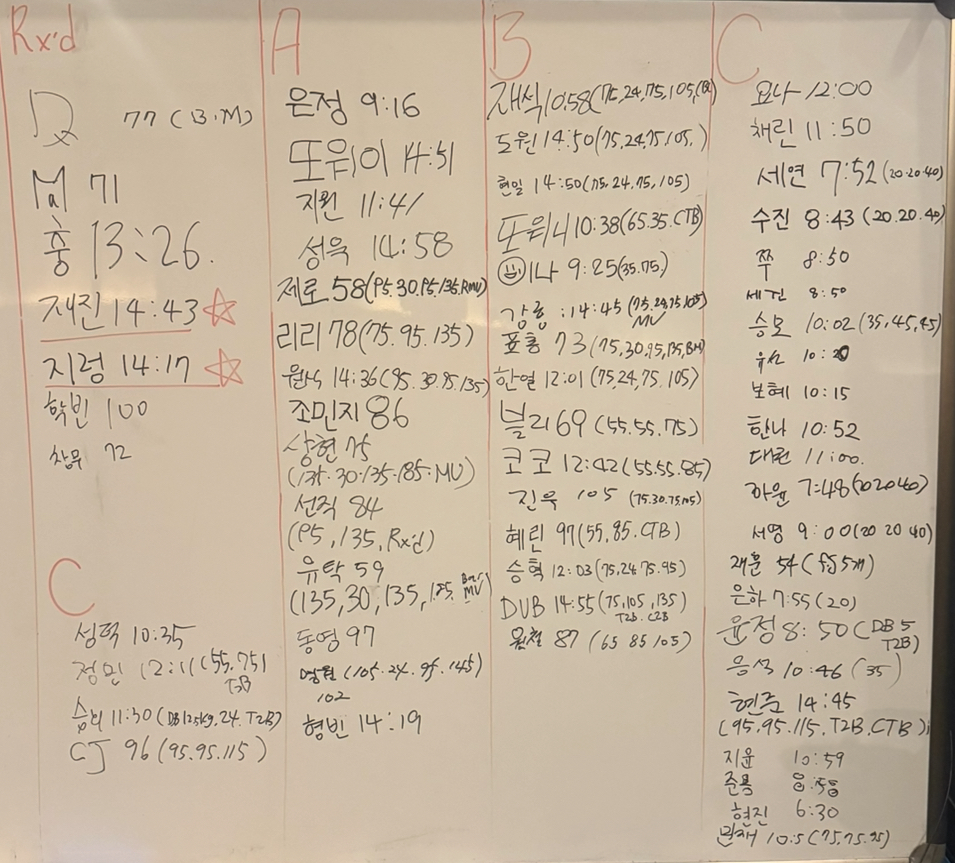 Rx'd
77 (B.M)
Mal 71
훙 13:26.
재진 14:43
지렁 14:17
학빈 100
창무 72
C
성덕 10:35
정민 12:11 (55.75)
T2B
11:30 (DB 12.5kg. 24. T2B)
CJ 96 (95.95.115)
A
은정 9:16
또워이 14:51
지원 11:41
성욱 14:58
제로 58 (95.30.95.135.RMU)
리리 78 (75.95.135)
원식 14:36 (95.30.95.135)
조민지 86
상현 75
(135.30.135.185.MU)
선직 84
(95,135,Rx'd)
유탁 59
(135,30,135,185. Bar MU)
동영 97
(105.24.95.145)
102
형빈 14:19
B
재식 10:58 (75,24,75,105,
도원 14:50 (75.24.75.105.)
현일 14:50 (75,24,75,105)
또워니 10:38 (65.35.CTB)
이나 9:25 (35.75)
강훙 :14:45 (75.24.75.105)
MU
표홍 73 (75,30,95,135,BM)
한열 12:01 (75,24,75.105)
블리 69 (55.55.75)
코코 12:42 (55.55.85)
진욱 105 (75.30.75.105)
혜린 97 (55,85.CTB)
승혁 12:03 (75,24.75.95)
DUB 14:55 (75,105,135)
T2B. C2B
87 (65 85 105)
C
요나 12:00
채린 11:50
세연 7:52 (20.20.40)
수진 8:43 (20.20.40)
쭈 8:50
세진 8:50
승모 10:02 (35,45,45)
유선 10:20
보혜 10:15
한나 10:52
대원 11:00.
자윤 7:48 (20 20 40)
서영 9:00 (20 20 40)
재훈 54
은하 7:55 (20)
윤정 8:50 (DB 5
T2B)
음석 10:46 (35)
현준 14:45
(95.95.115.T2B.CTB)
지윤 10:59
준용 8:58
현진 6:30
민재 10:5 (75.75.95)